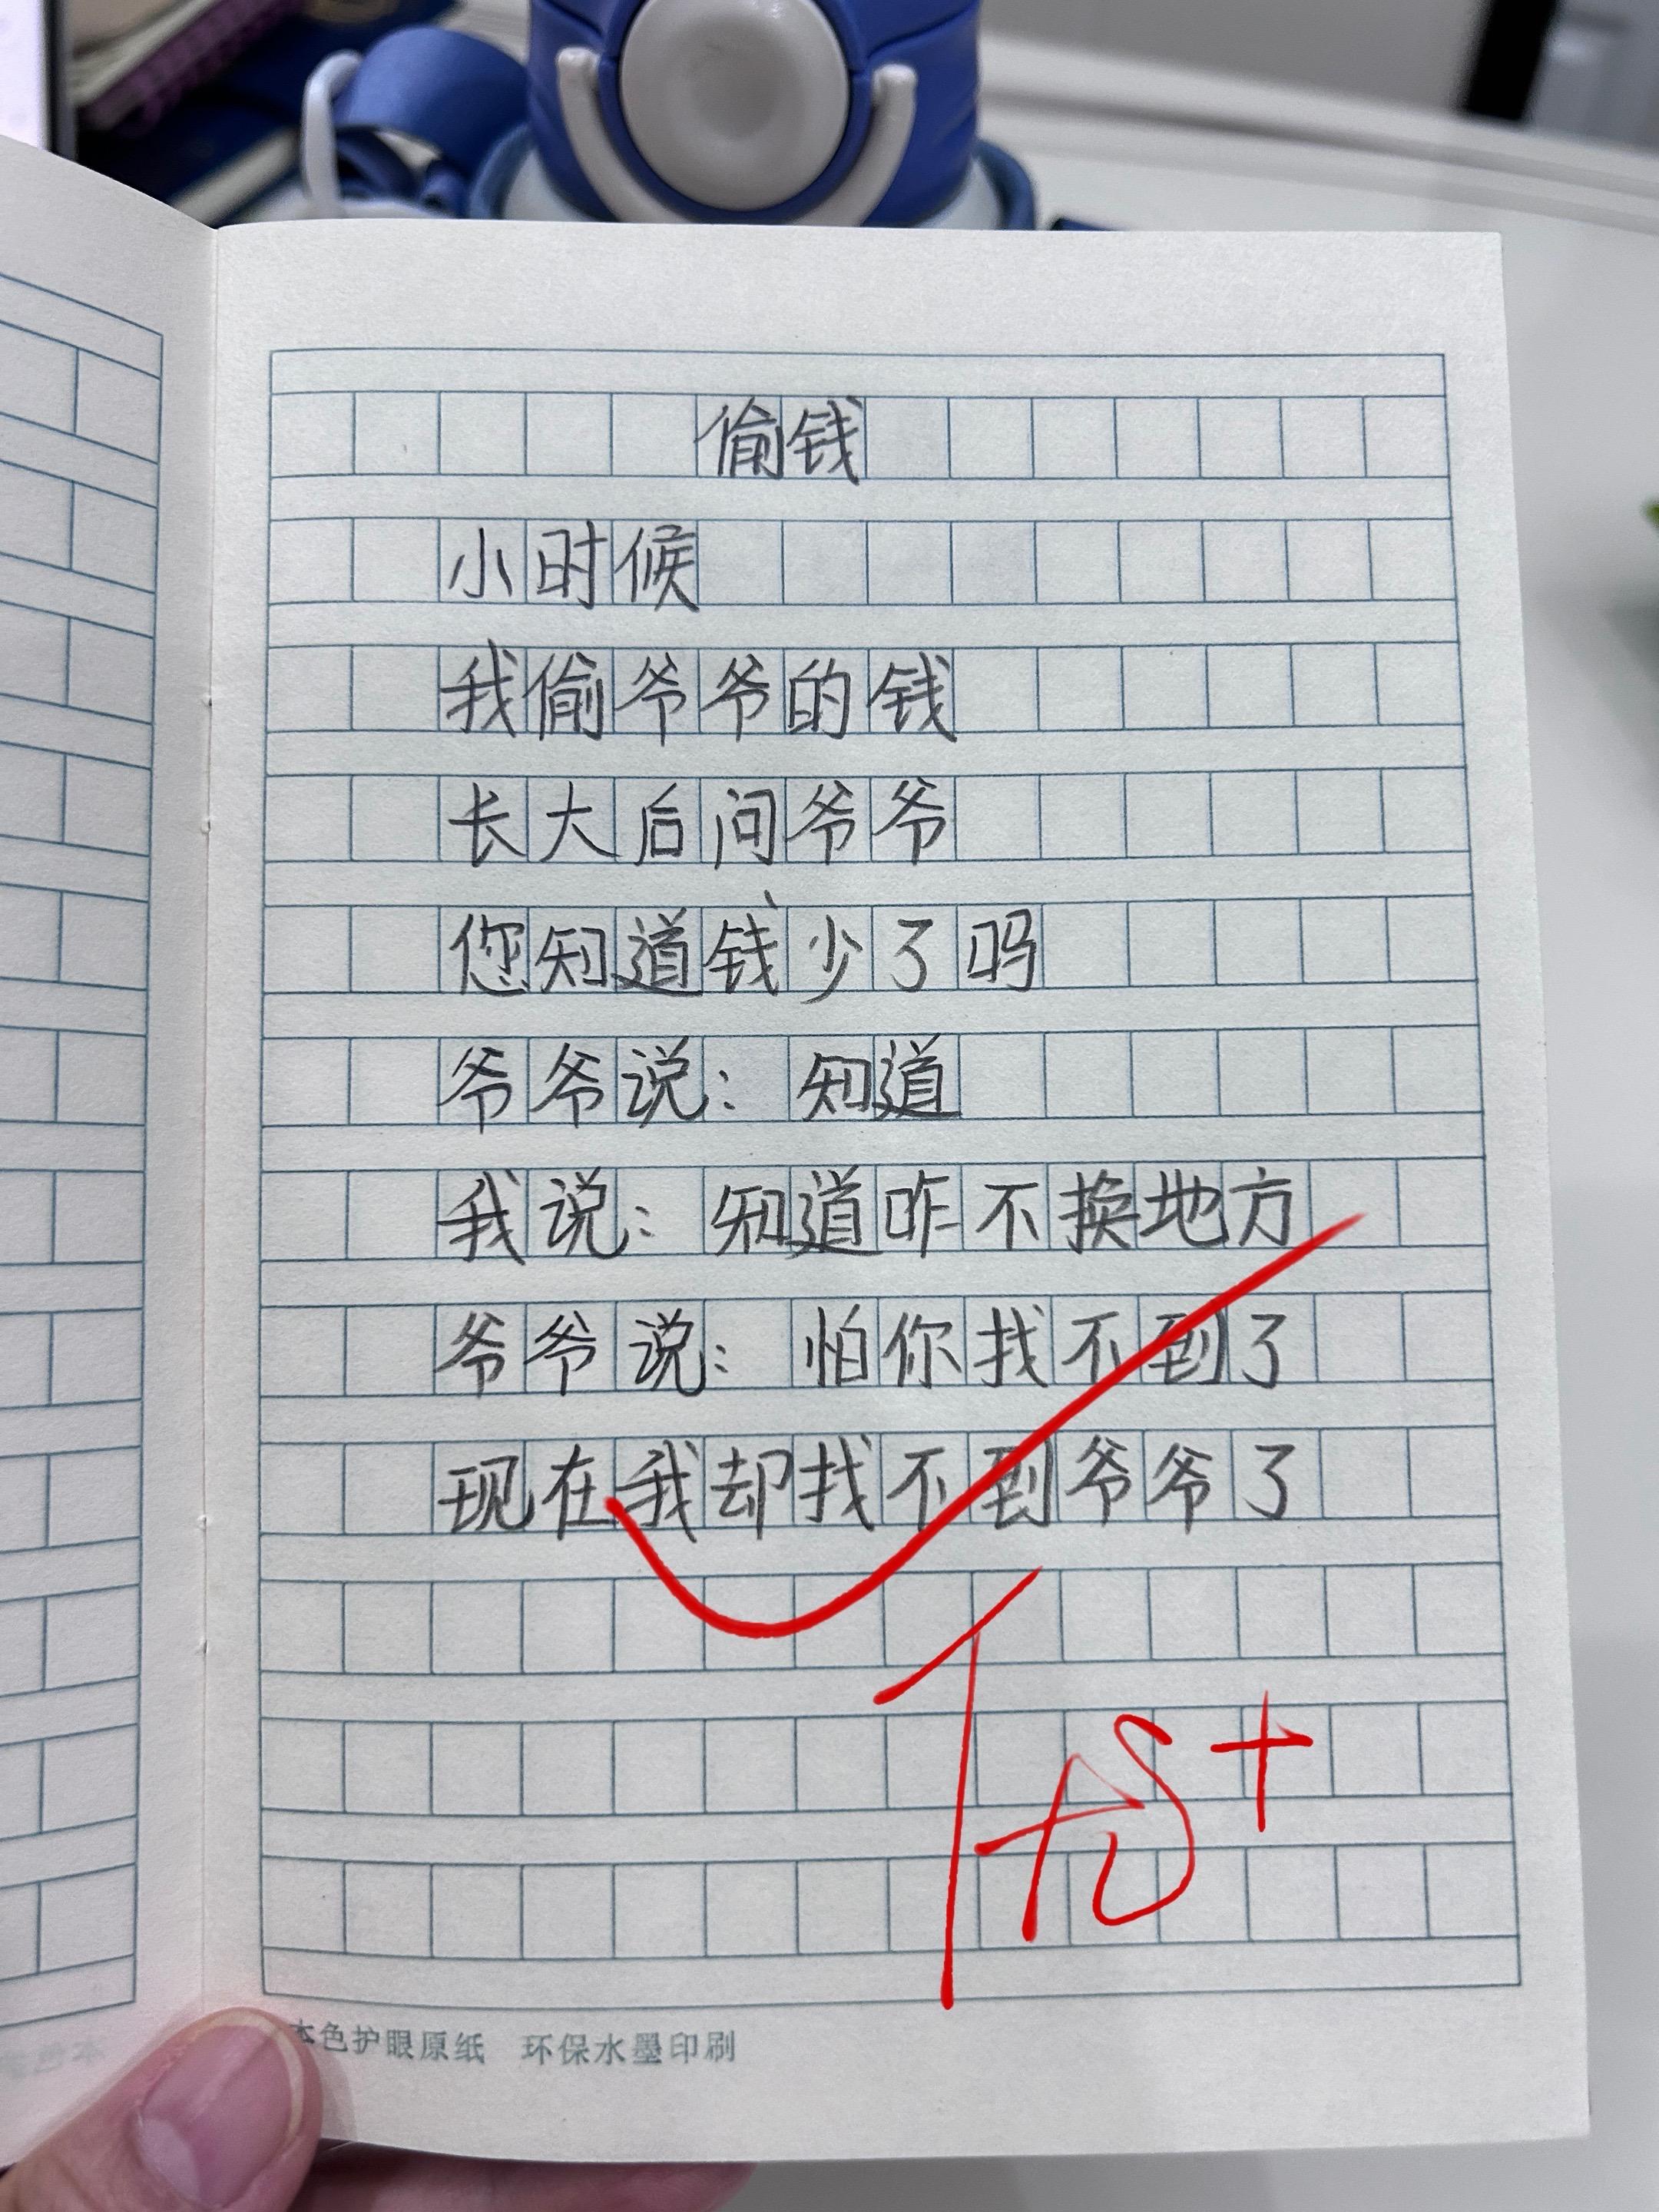 偷钱
小时候
我偷爷爷的钱
长大后问爷爷
您知道钱少了吗
爷爷说：知道
我说：知道咋不换地方
爷爷说：怕你找不到了
现在我却找不到爷爷了
本色护眼原纸 环保水墨印刷